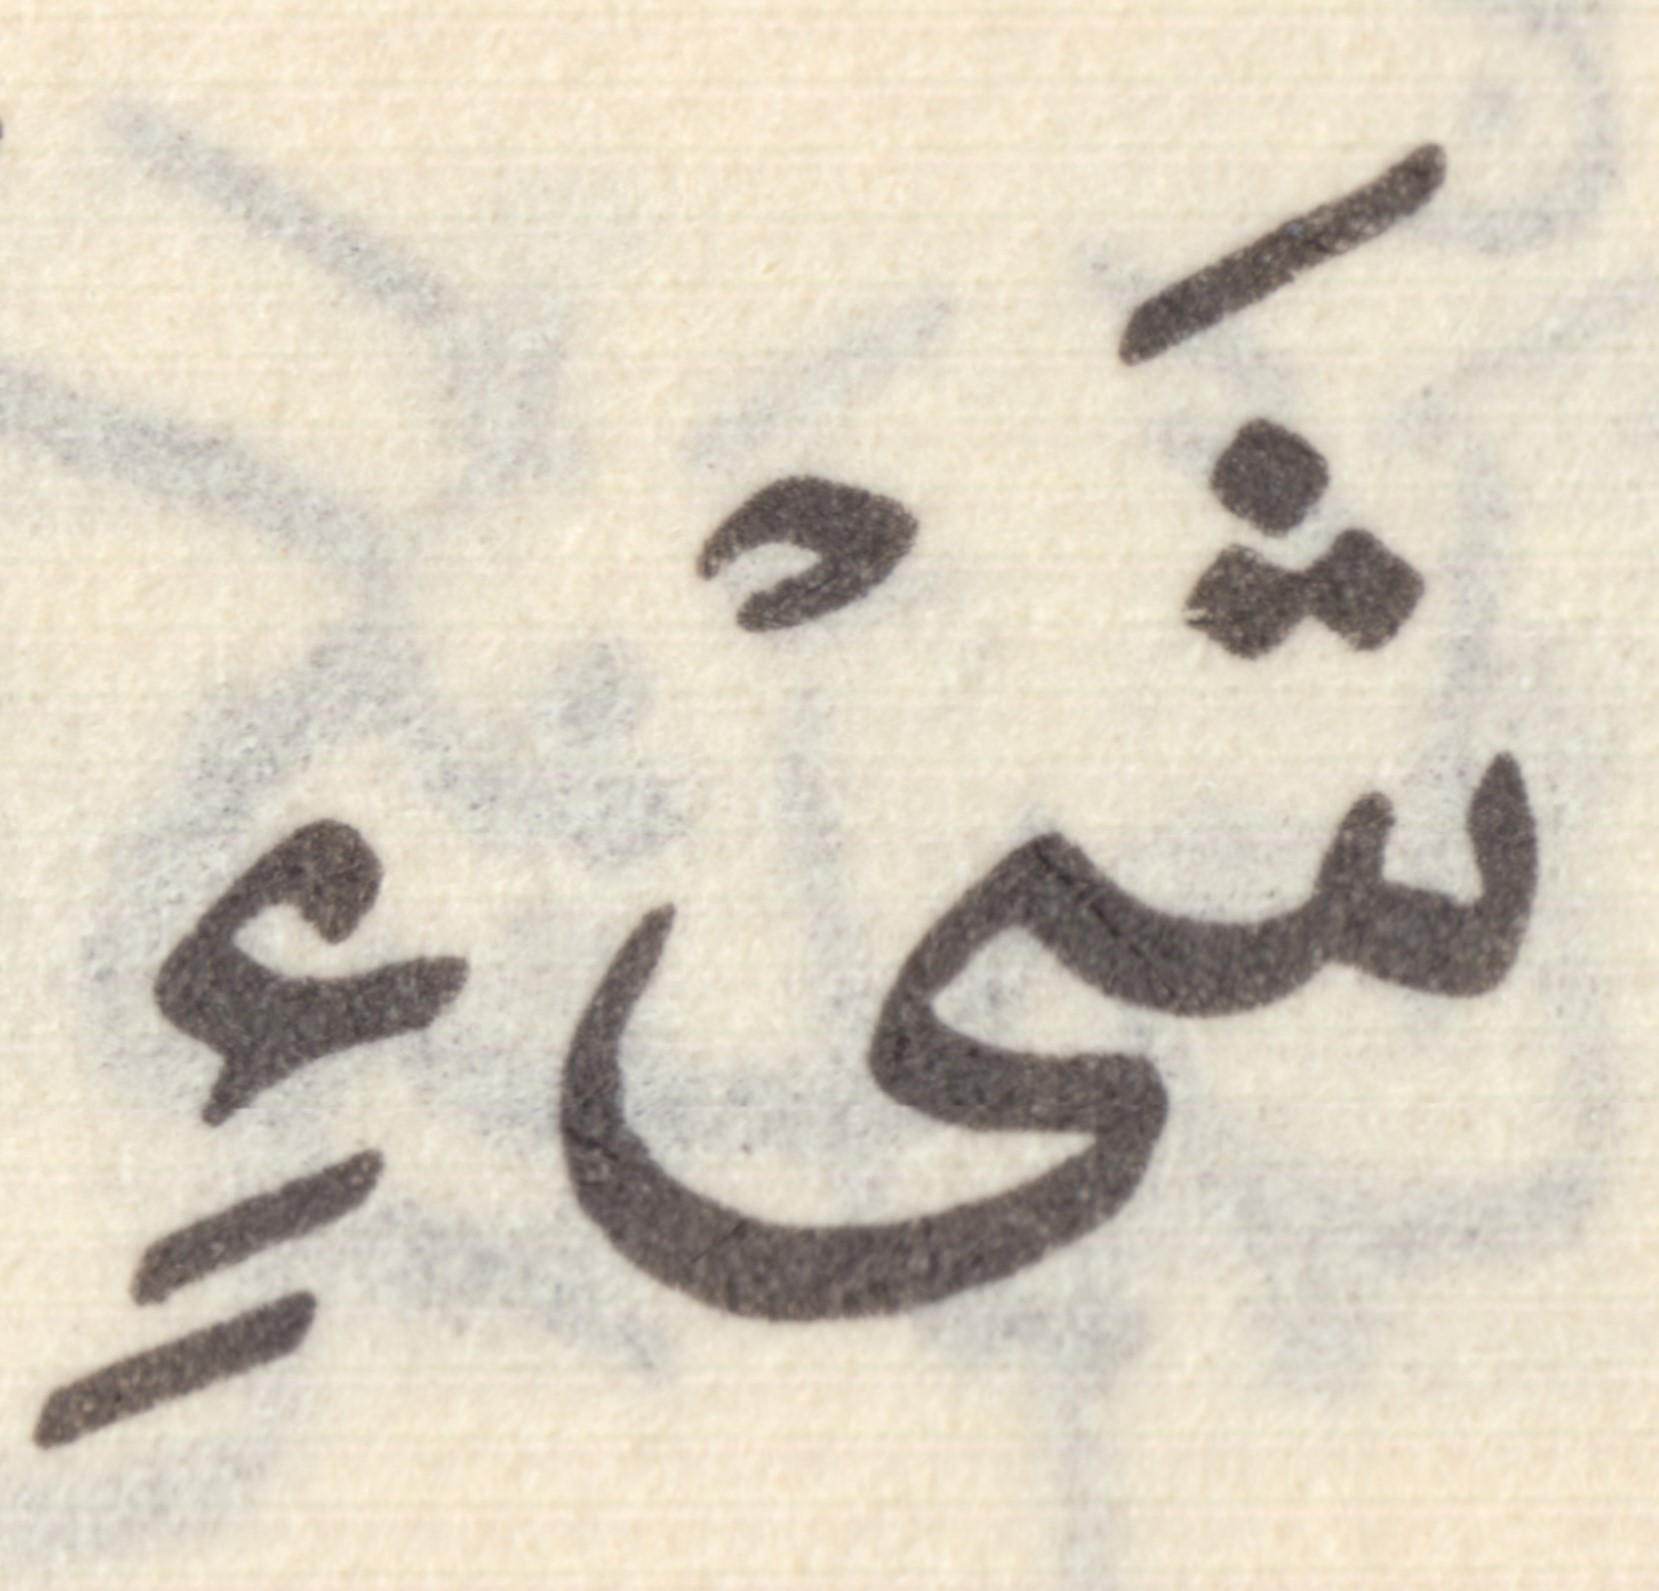 شَىْءٍ